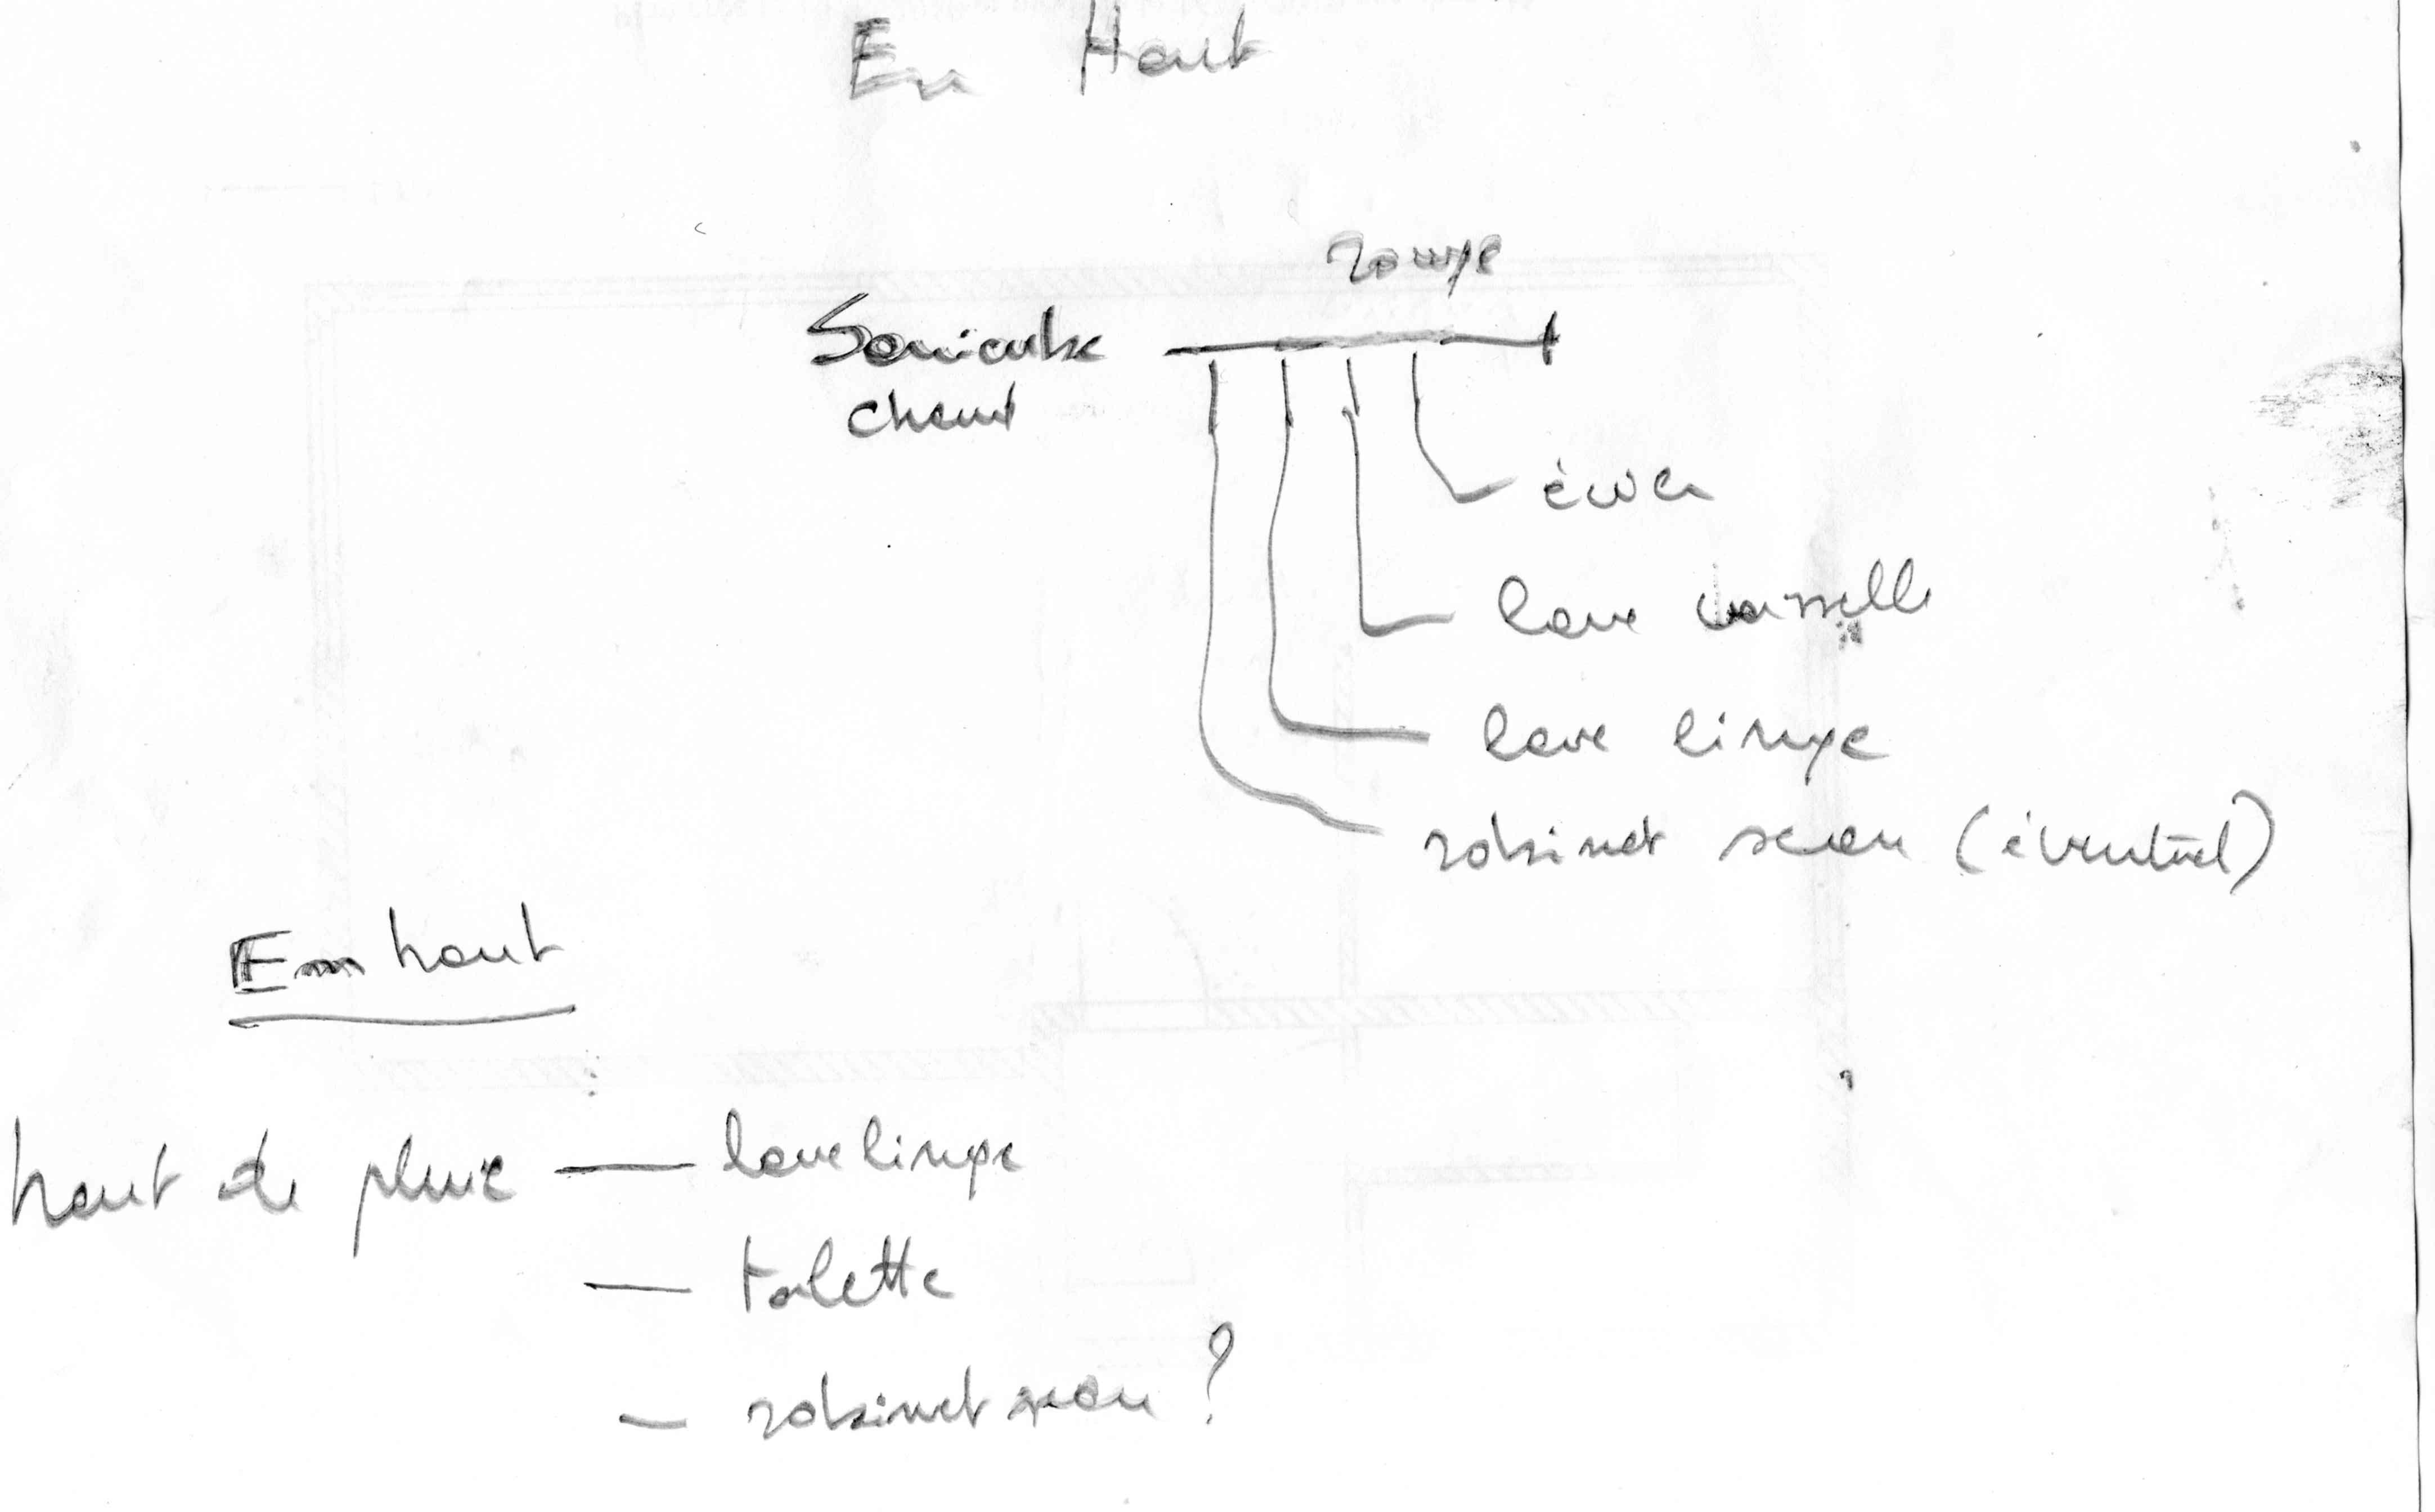 En Haut
rampe
Sanicube
chaud
évier
lave vaisselle
lave linge
robinet seau (éventuel)
En haut
haut de pluie — lave linge
— toilette
— robinet seau ?